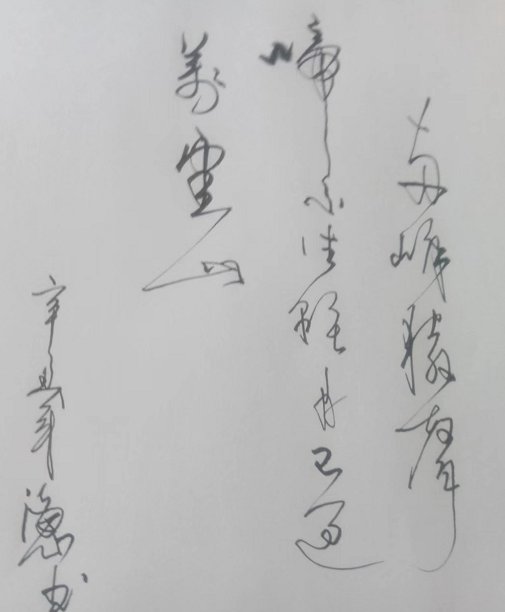 两岸猿声
啼不住轻舟已过
万重山
辛丑年 书